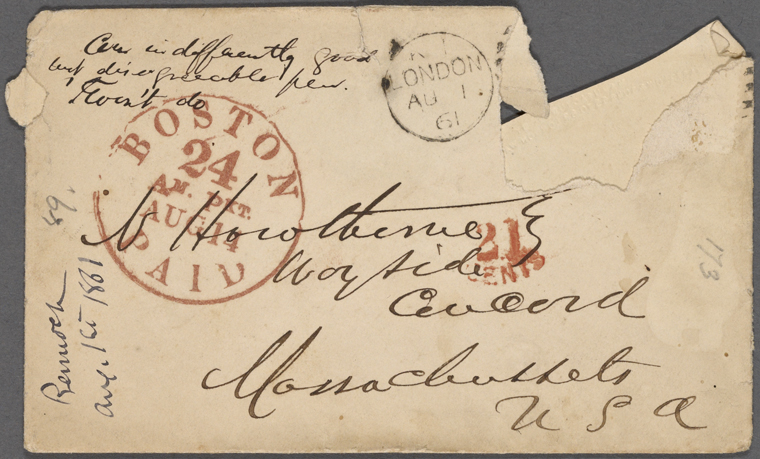 indifferently good
but disagreeable pen.
'Twon't do
LONDON
AU 1
61
BOSTON
24
AM. PKT.
AUG 14
PAID
N Hawthorne Esq
21
CENTS
Wayside
Concord
Massachussets
U S A
89.
Bennoch
Aug. 1st 1861
173